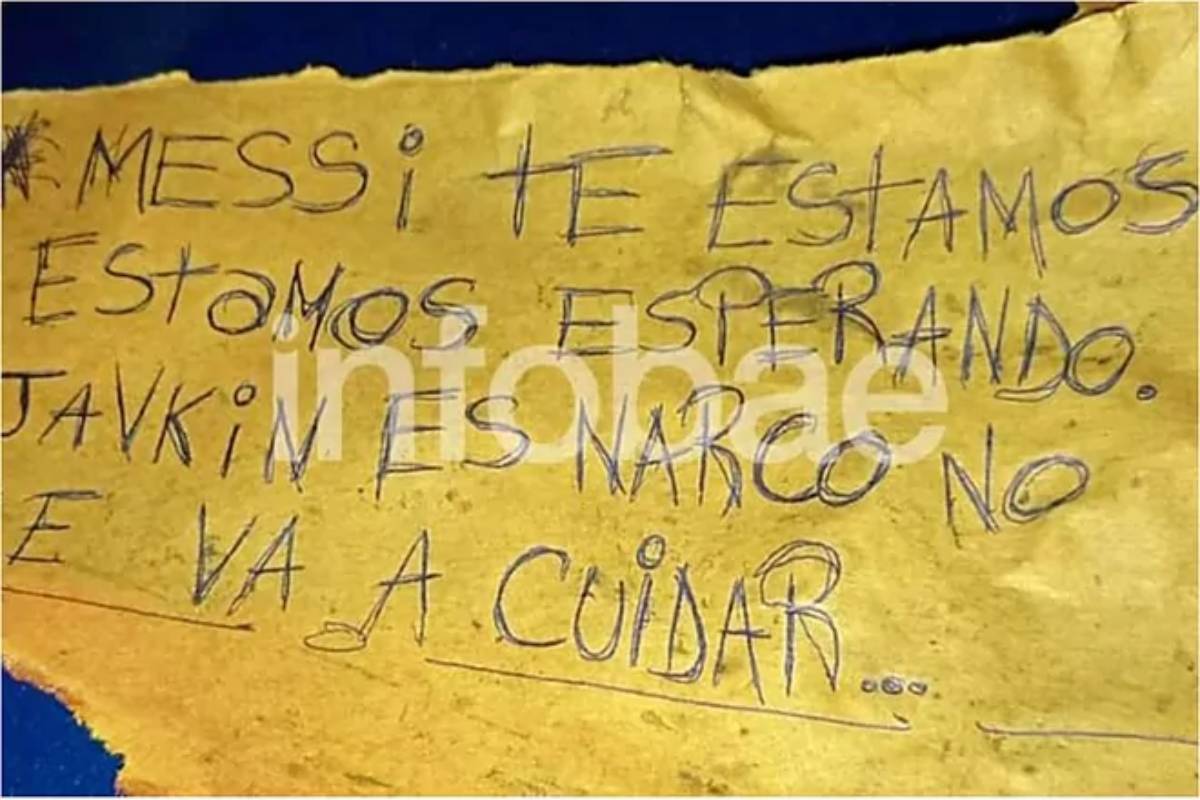 MESSi tE EStAMOS
EStaMOS ESPERANDO.
JAVKiN ES NARCO NO
E VA A CUiDAR...
infobae